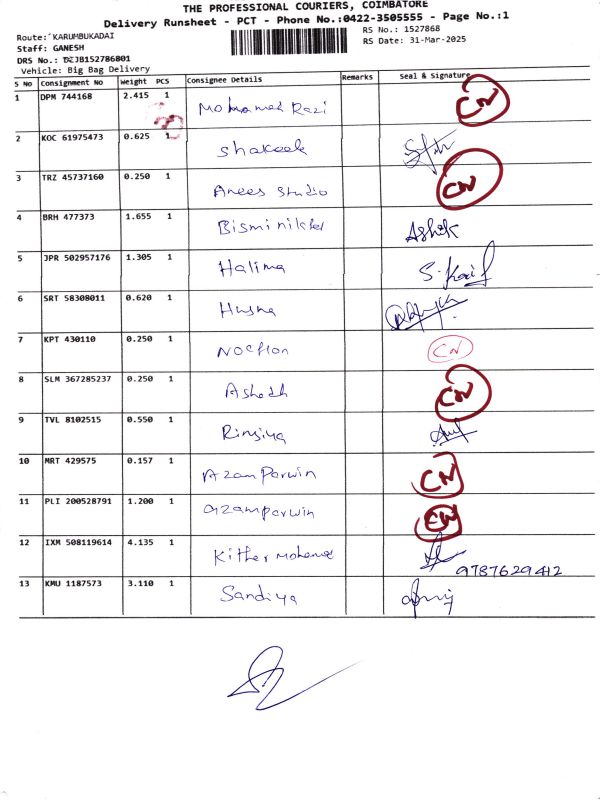 THE PROFESSIONAL COURIERS, COIMBATORE
Delivery Runsheet - PCT - Phone No.:0422-3505555 - Page No.:1
Route: KARUMBUKADAI
RS No.: 1527868
Staff: GANESH
RS Date: 31-Mar-2025
DRS No.: DZJB152786801
Vehicle: Big Bag Delivery
S No Consignment No Weight PCS Consignee Details Remarks Seal & Signature
1 DPM 744168 2.415 1 Mohamed Razi CN
2 KOC 61975473 0.625 1 Shakeek
3 TRZ 45737160 0.250 1 Anees Studio CN
4 BRH 477373 1.655 1 Ashik
5 JPR 502957176 1.305 1 Halima S. Kaif
6 SRT 58308011 0.620 1 Husna
7 KPT 430110 0.250 1 CN
8 SLM 367285237 0.250 1 CN
9 TVL 8102515 0.550 1 Rinsiya
10 MRT 429575 0.157 1 Azam Parwin CN
11 PLI 200528791 1.200 1 azamparwin CN
12 IXM 508119614 4.135 1 Kither Mohamed
9787629412
13 KMU 1187573 3.110 1 Sandiya